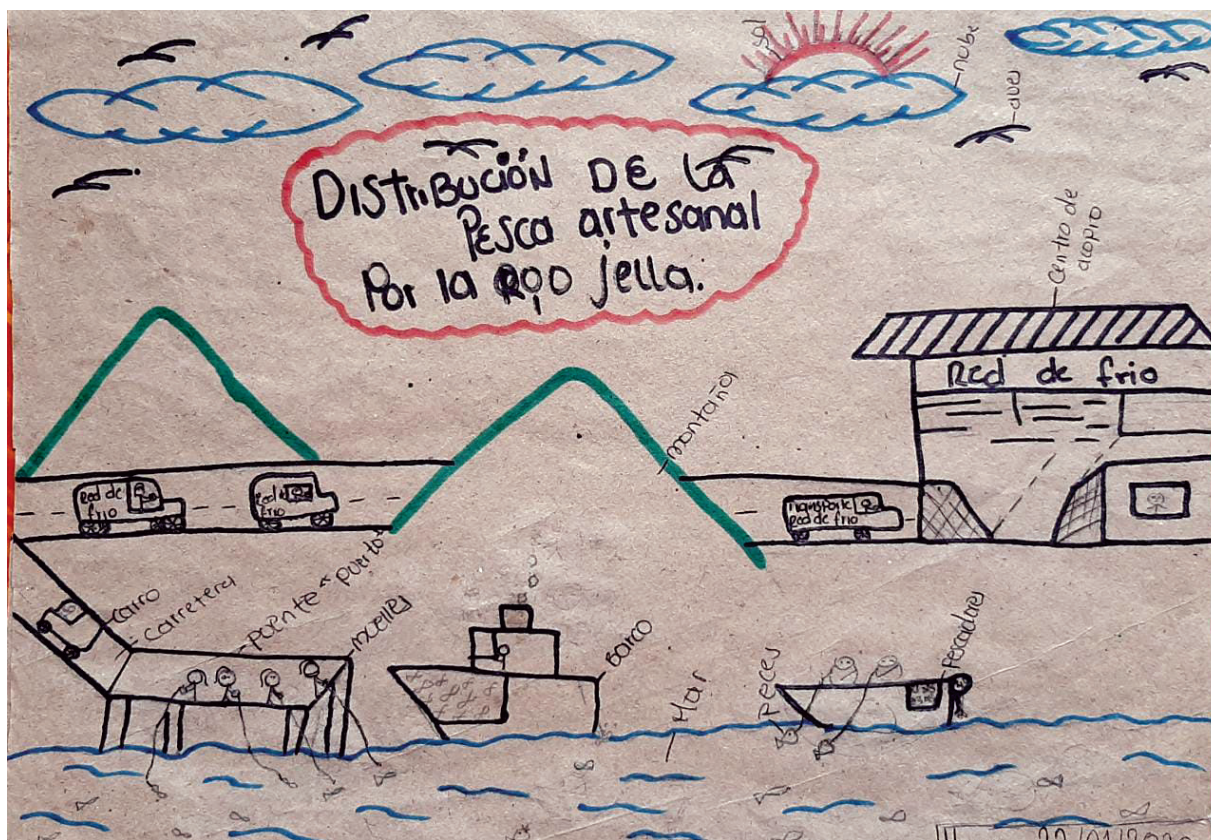 sol
nube
aves
DISTRIBUCIÓN DE La
Pesca artesanal
Por la jella.
centro de
acopio
Red de frio
montaña
Red de
frio
Red
frio
Transporte
Red de frio
carro
carretera
puente "puerto"
muelles
Barco
Mar
Peces
Pescadores